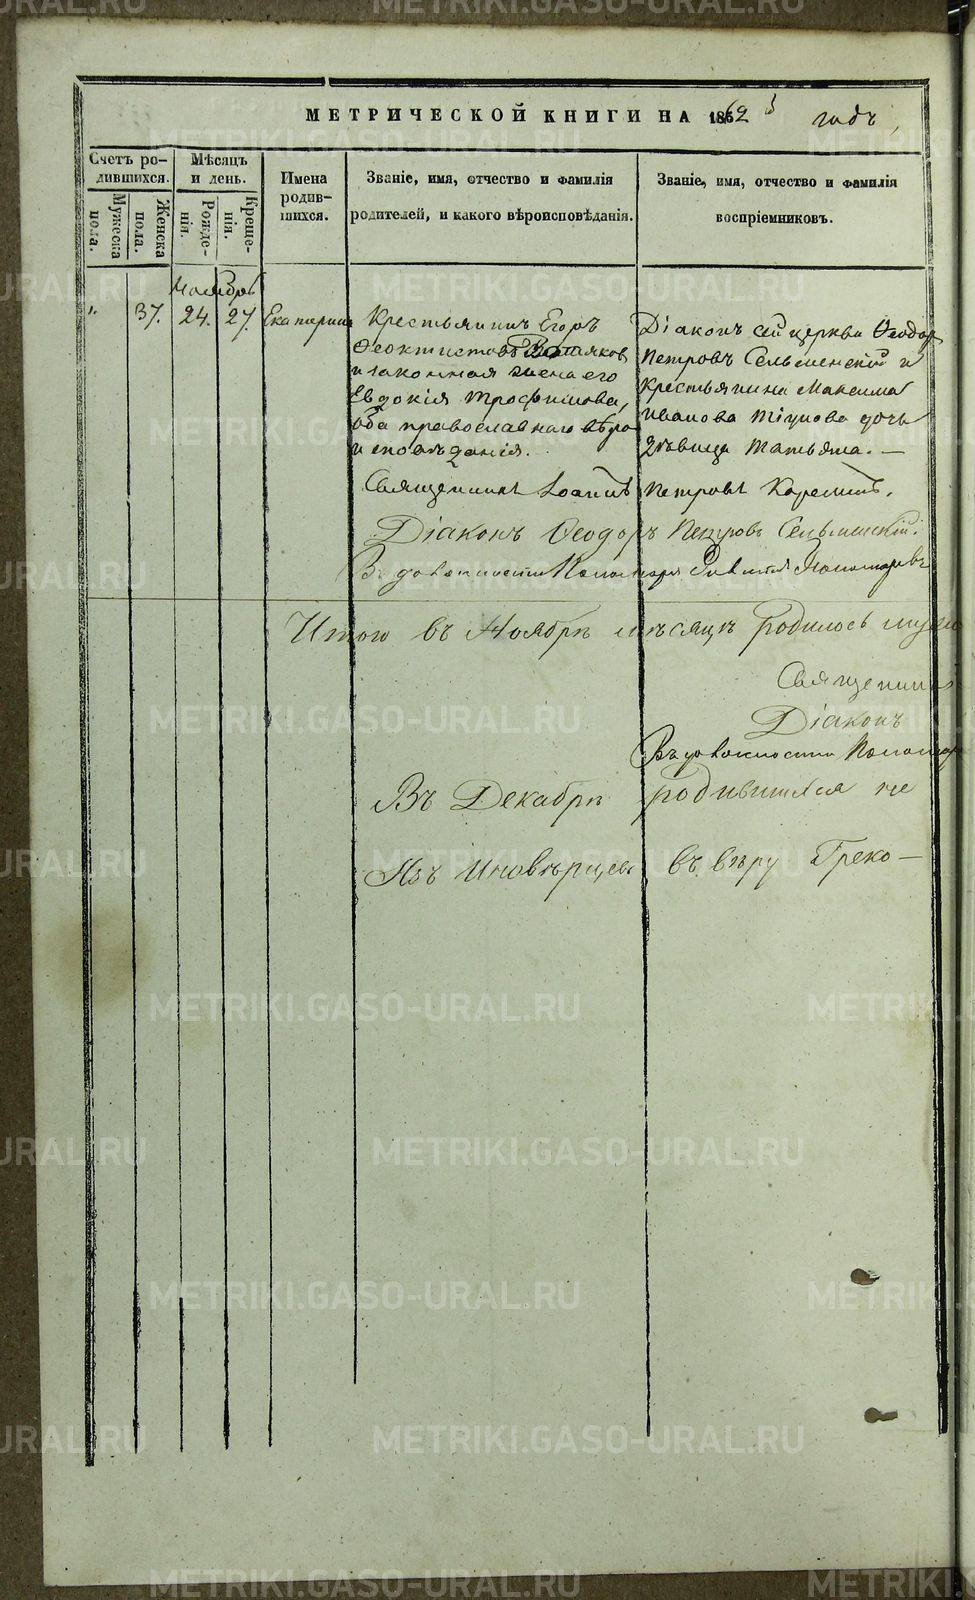 МЕТРИЧЕСКОЙ КНИГИ НА 1862й годъ,
Счетъ ро-
дившихся.
Мужеска
пола.
Женска
пола.
Мѣсяцъ
и день.
Рожде-
нія.
Креще-
нія.
Имена
родив-
шихся.
Званіе, имя, отчество и фамилія
родителей, и какого вѣроисповѣданія.
Званіе, имя, отчество и фамилія
воспріемниковъ.
Ноябрь
37.
24.
27.
Екатерина
Крестьянинъ Егоръ
Ѳеоктистовъ
и законная жена его
Евдокія Трофимова,
оба православнаго вѣро
исповѣданія.
Діаконъ сей церкви Ѳеодоръ
Петровъ Сельменскій и
крестьянина Максима
Иванова Тіунова дочь
дѣвица Татьяна. —
Священникъ Іоаннъ Петровъ Карелинъ.
Діаконъ Ѳеодоръ Петровъ Сельменскій.
Въ должности Пономаря Пономаревъ
Итого въ Ноябрѣ мѣсяцѣ родилось муже
Священникъ
Діаконъ
Въ должности Пономар
Въ Декабрѣ родившихся не
Изъ Иновѣрцевъ въ вѣру Греко —
METRIKI.GASO-URAL.RU